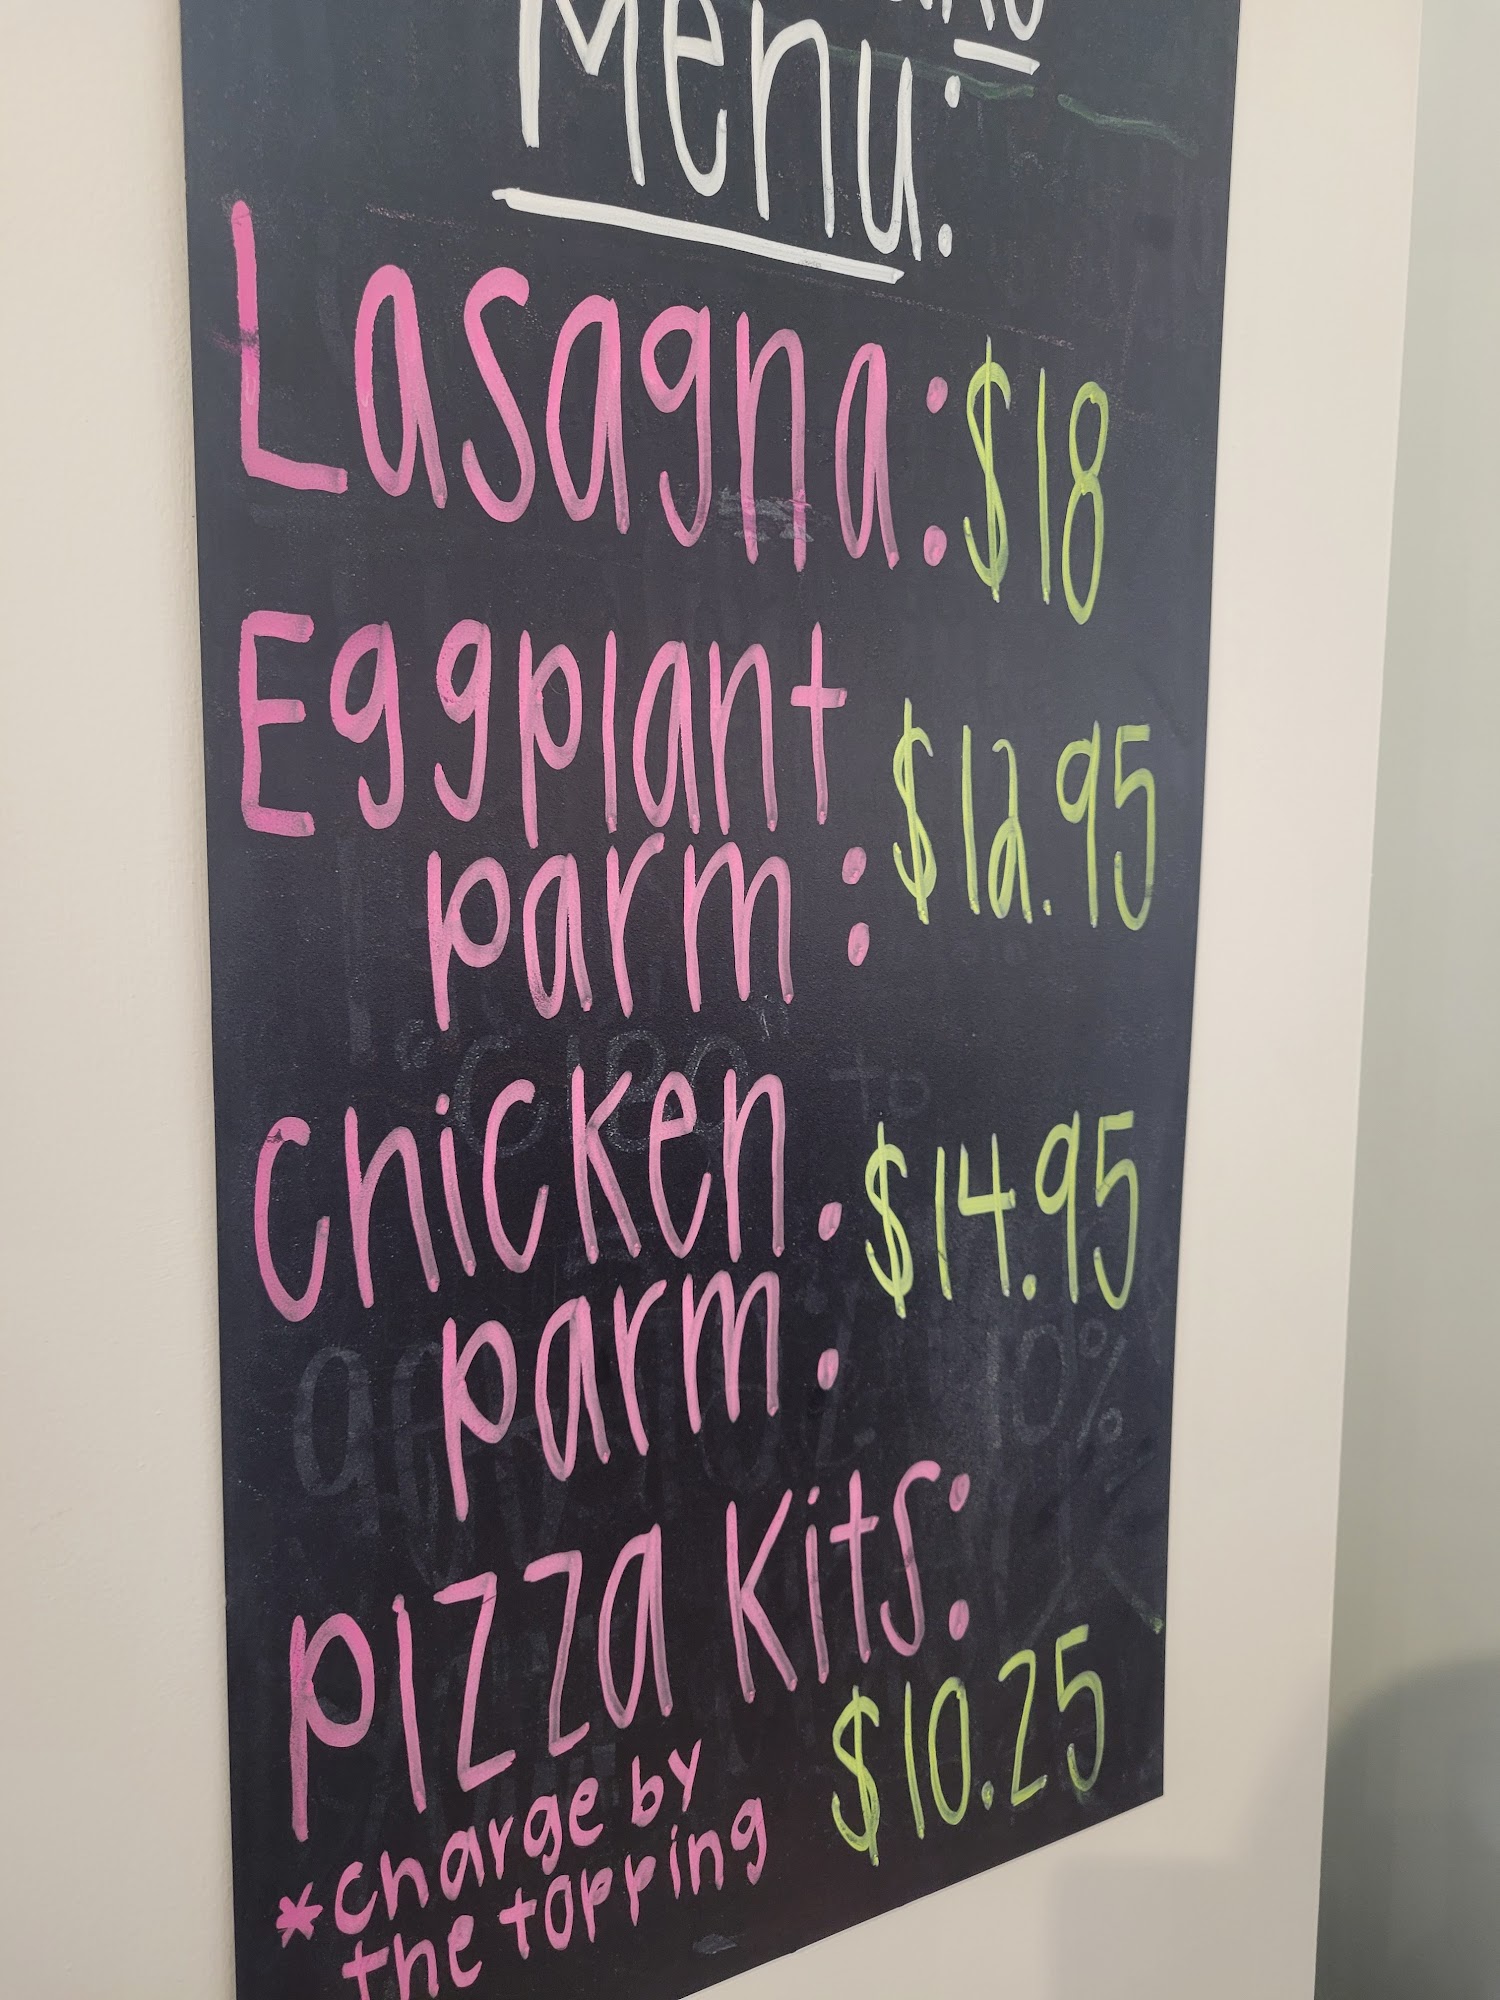 Menu:
Lasagna: $18
Eggplant
parm: $12.95
Chicken
parm: $14.95
Pizza Kits:
$10.25
*charge by
the topping